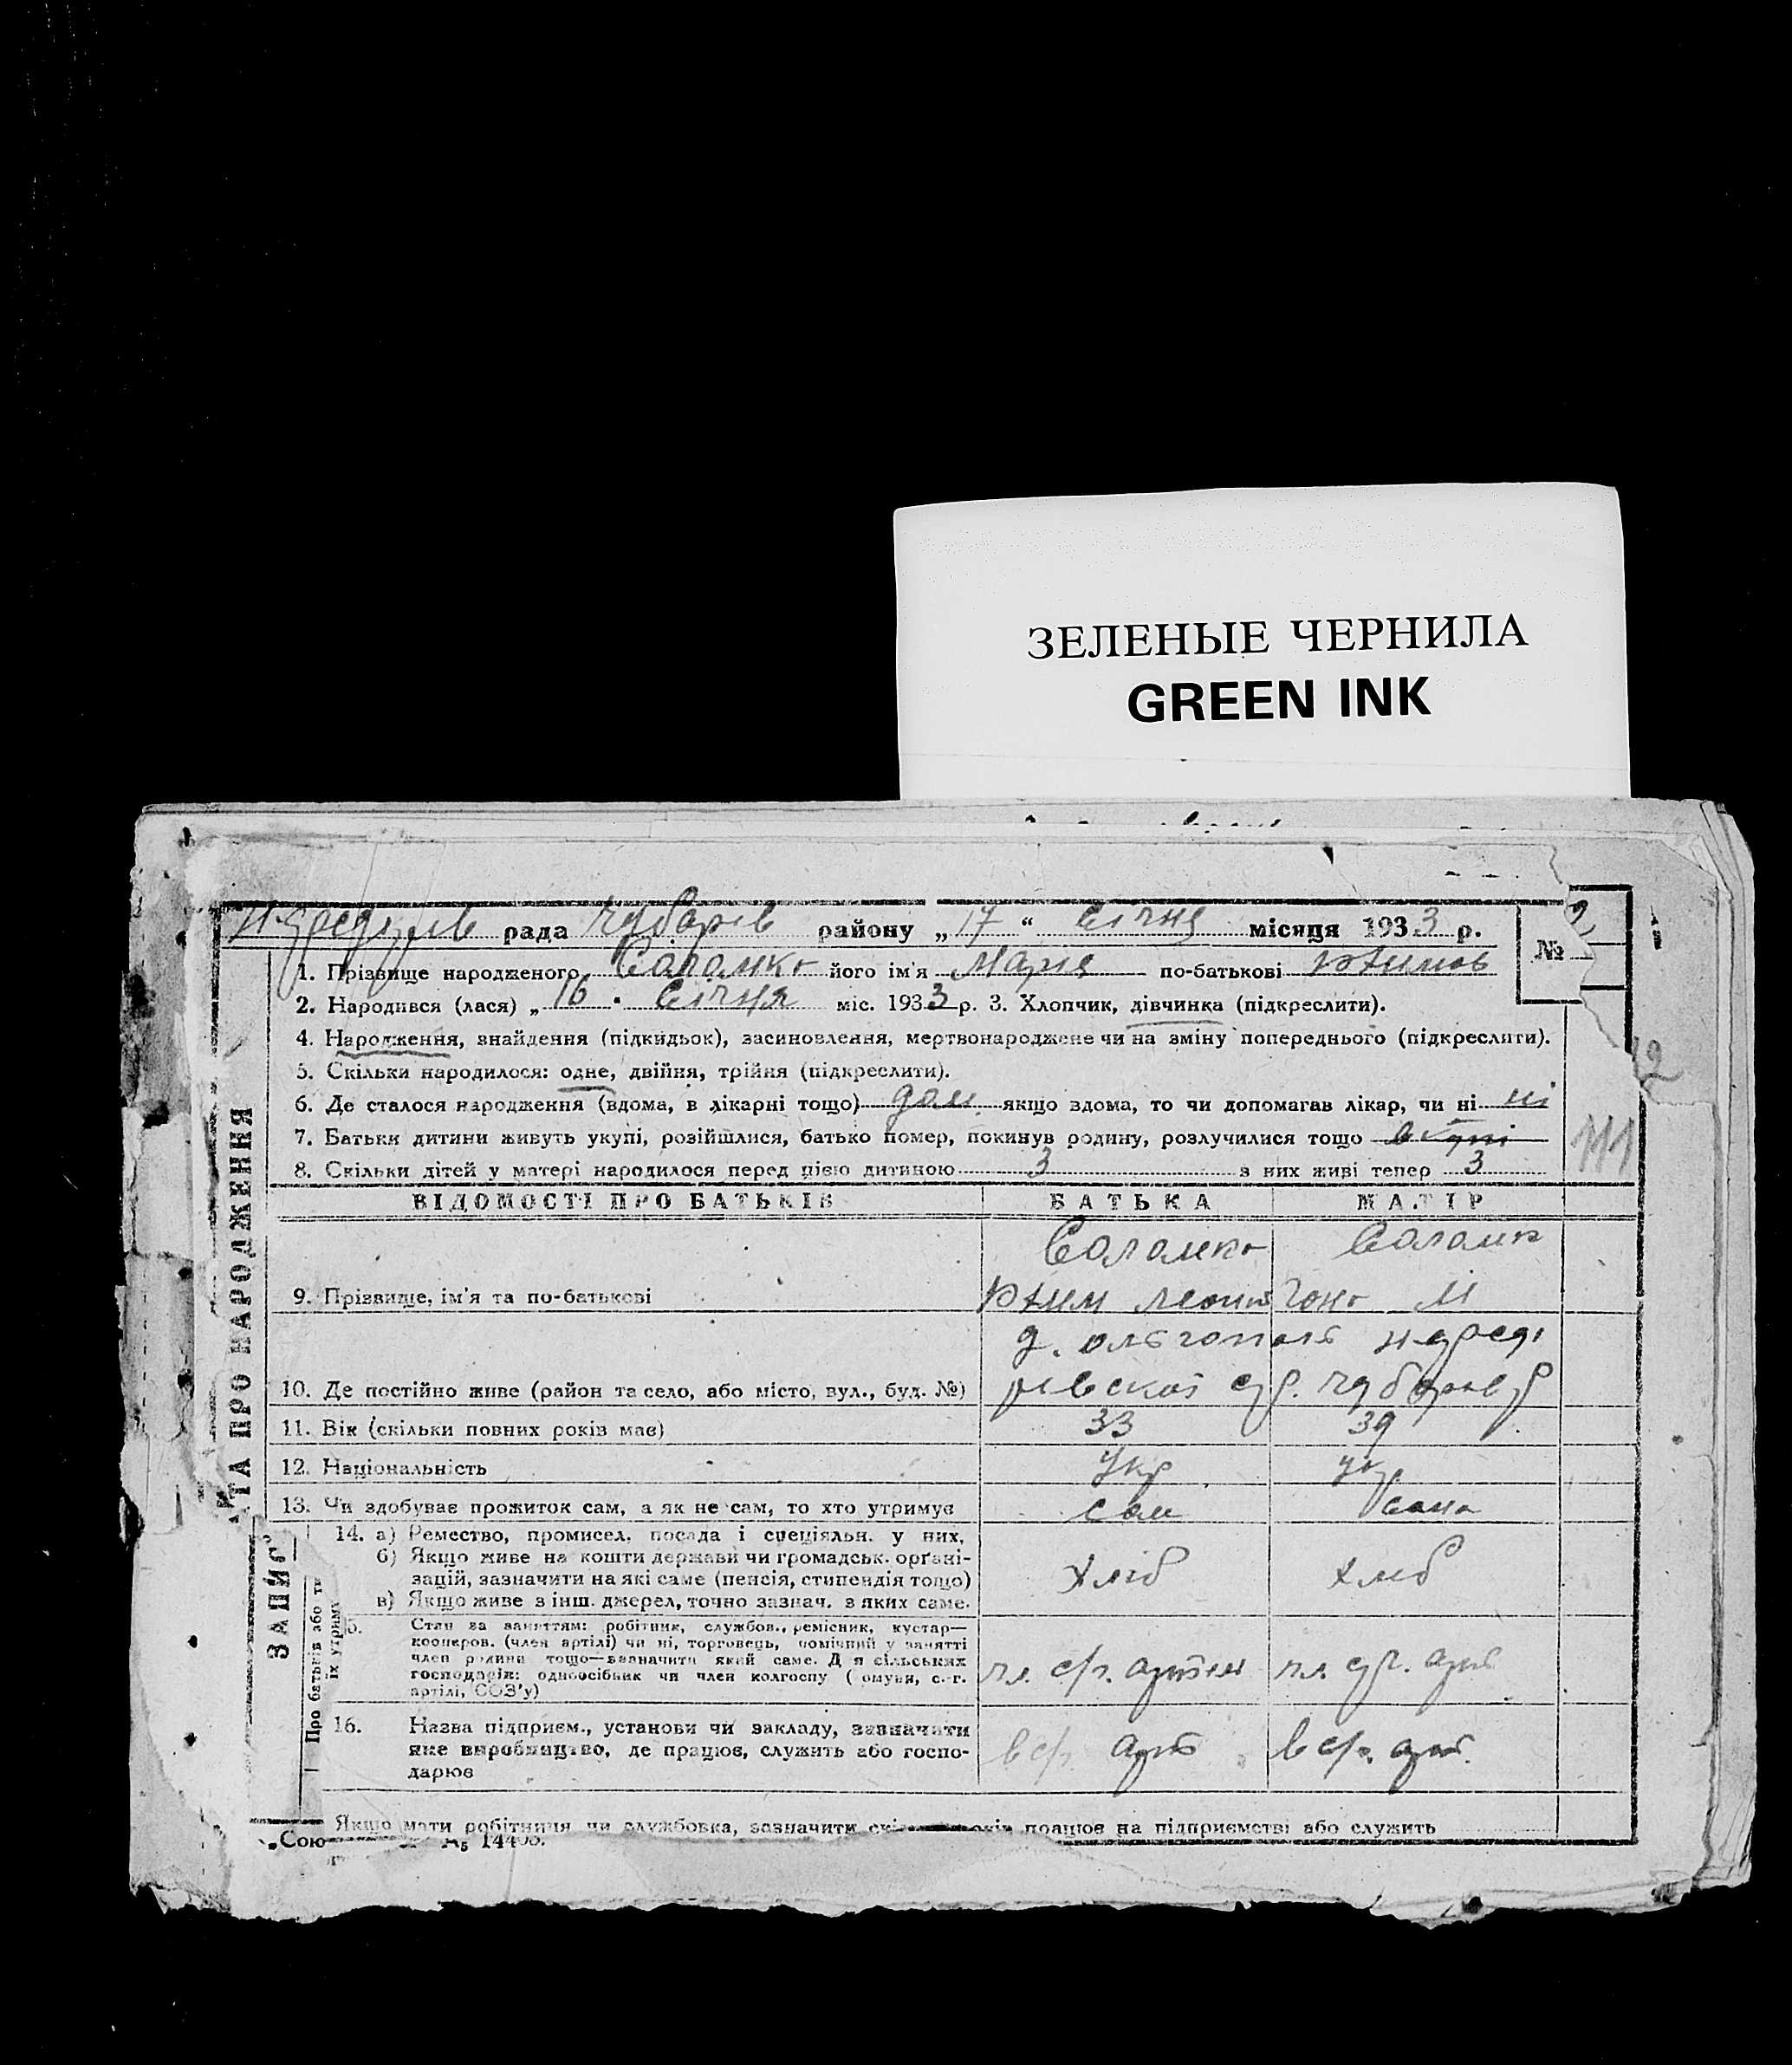 ЗЕЛЕНЫЕ ЧЕРНИЛА
GREEN INK
рада Чубарів району „17“ Січня місяця 1933 р. № 2
1. Прізвище народженого Саламко його ім'я Марія по-батькові Юхимов
2. Народився (лася) „16 Січня міс. 1933 р. 3. Хлопчик, дівчинка (підкреслити).
4. Народження, знайдення (підкидьок), засиновлення, мертвонароджене чи на зміну попереднього (підкреслити).
5. Скільки народилося: одне, двійня, трійня (підкреслити).
6. Де сталося народження (вдома, в лікарні тощо) дом якщо вдома, то чи допомагав лікар, чи ні ні
7. Батьки дитини живуть укупі, розійшлися, батько помер, покинув родину, розлучилися тощо вкупі
8. Скільки дітей у матері народилося перед цією дитиною 3 з них живі тепер 3
ВІДОМОСТІ ПРО БАТЬКІВ БАТЬКА МАТІР
Саламко Саламк
9. Прізвище, ім'я та по-батькові Юхим М
д. Ольгополь
10. Де постійно живе (район та село, або місто, вул., буд. №)
11. Вік (скільки повних років має) 33 39
12. Національність Укр укр
13. Чи здобуває прожиток сам, а як не сам, то хто утримує сам сама
14. а) Ремество, промисел, посада і спеціяльн. у них,
б) Якщо живе на кошти держави чи громадськ. орґані-
зацій, зазначити на які саме (пенсія, стипендія тощо) хліб хліб
в) Якщо живе з інш. джерел, точно зазнач. з яких саме.
5. Стан за заняттям: робітник, службов., ремісник, кустар—
кооперов. (член артілі) чи ні, торговець, помічний у занятті
член родини тощо—зазначити який саме. Д я сільських
господарів: одноосібник чи член колгоспу ( омуни, с.-г.
артілі, СОЗ'у) чл. с/г. артіл чл. с/г. арт
16. Назва підприєм., установи чи закладу, зазначити
яке виробництво, де працює, служить або госпо-
дарює в с/г. арт в с/г. арт.
Якщо мати робітниця чи службовка, зазначити працює на підприємстві або служить
„Сою А5 14408.
ТА ПРО НАРОДЖЕННЯ
ЗАПИС
Про батьків або
їх утрим